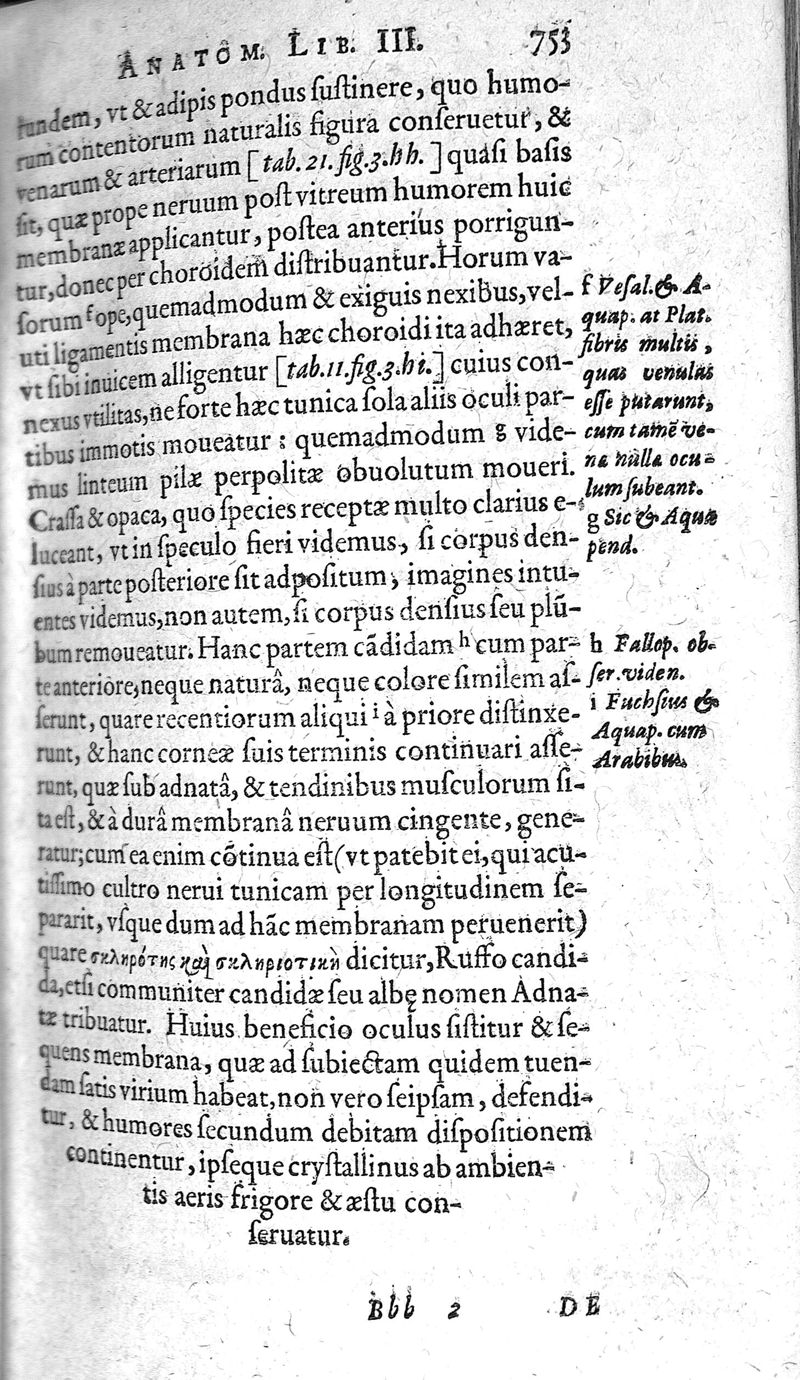 ANATOM. LIB. III. 753
tundem, vt & adipis pondus ſuſtinere, quo humo-
rum contentorum naturalis figura conſeruetur, &
venarum & arteriarum [tab. 21. fig. 3. hh.] quaſi baſis
ſit, quæ prope neruum poſt vitreum humorem huic
membranæ applicantur, poſtea anterius porrigun-
tur, donec per choroidem diſtribuantur. Horum va-
ſorum f ope, quemadmodum & exiguis nexibus, vel-
uti ligamentis membrana hæc choroidi ita adhæret,
vt ſibi inuicem alligentur [tab. 11. fig. 3. hi.] cuius con-
nexus vtilitas, ne forte hæc tunica ſola aliis oculi par-
tibus immotis moueatur : quemadmodum g vide-
mus linteum pilæ perpolitæ obuolutum moueri.
Craſſa & opaca, quo ſpecies receptæ multo clarius e-
luceant, vt in ſpeculo fieri videmus, ſi corpus den-
ſius à parte poſteriore ſit adpoſitum, imagines intu-
entes videmus, non autem, ſi corpus denſius ſeu plū-
bum remoueatur. Hanc partem cādidam h cum par-
te anteriore, neque naturâ, neque colore ſimilem aſ-
ſerunt, quare recentiorum aliqui i à priore diſtinxe-
runt, & hanc corneæ ſuis terminis continuari aſſe-
runt, quæ ſub adnatâ, & tendinibus muſculorum ſi-
ta eſt, & à durâ membranâ neruum cingente, gene-
ratur; cum ea enim cōtinua eſt (vt patebit ei, qui acu-
tiſſimo cultro nerui tunicam per longitudinem ſe-
pararit, vſque dum ad hāc membranam peruenerit)
quare σκληρότης καὶ σκληριοτικὴ dicitur, Ruffo candi-
da, etſi communiter candidæ ſeu albę nomen Adna-
tæ tribuatur. Huius beneficio oculus ſiſtitur & ſe-
quens membrana, quæ ad ſubiectam quidem tuen-
dam ſatis virium habeat, non vero ſeipſam, defendi-
tur, & humores ſecundum debitam diſpoſitionem
continentur, ipſeque cryſtallinus ab ambien-
tis aeris frigore & æſtu con-
ſeruatur.
f Veſal. & A-
quap. at Plat.
fibris multis,
quas venulas
eſſe putarunt,
cum tamē ve-
na nulla ocu-
lum ſubeant.
g Sic & Aqua
pend.
h Fallop. ob-
ſer. viden.
i Fuchſius &
Aquap. cum
Arabibus.
Bbb 2 DE